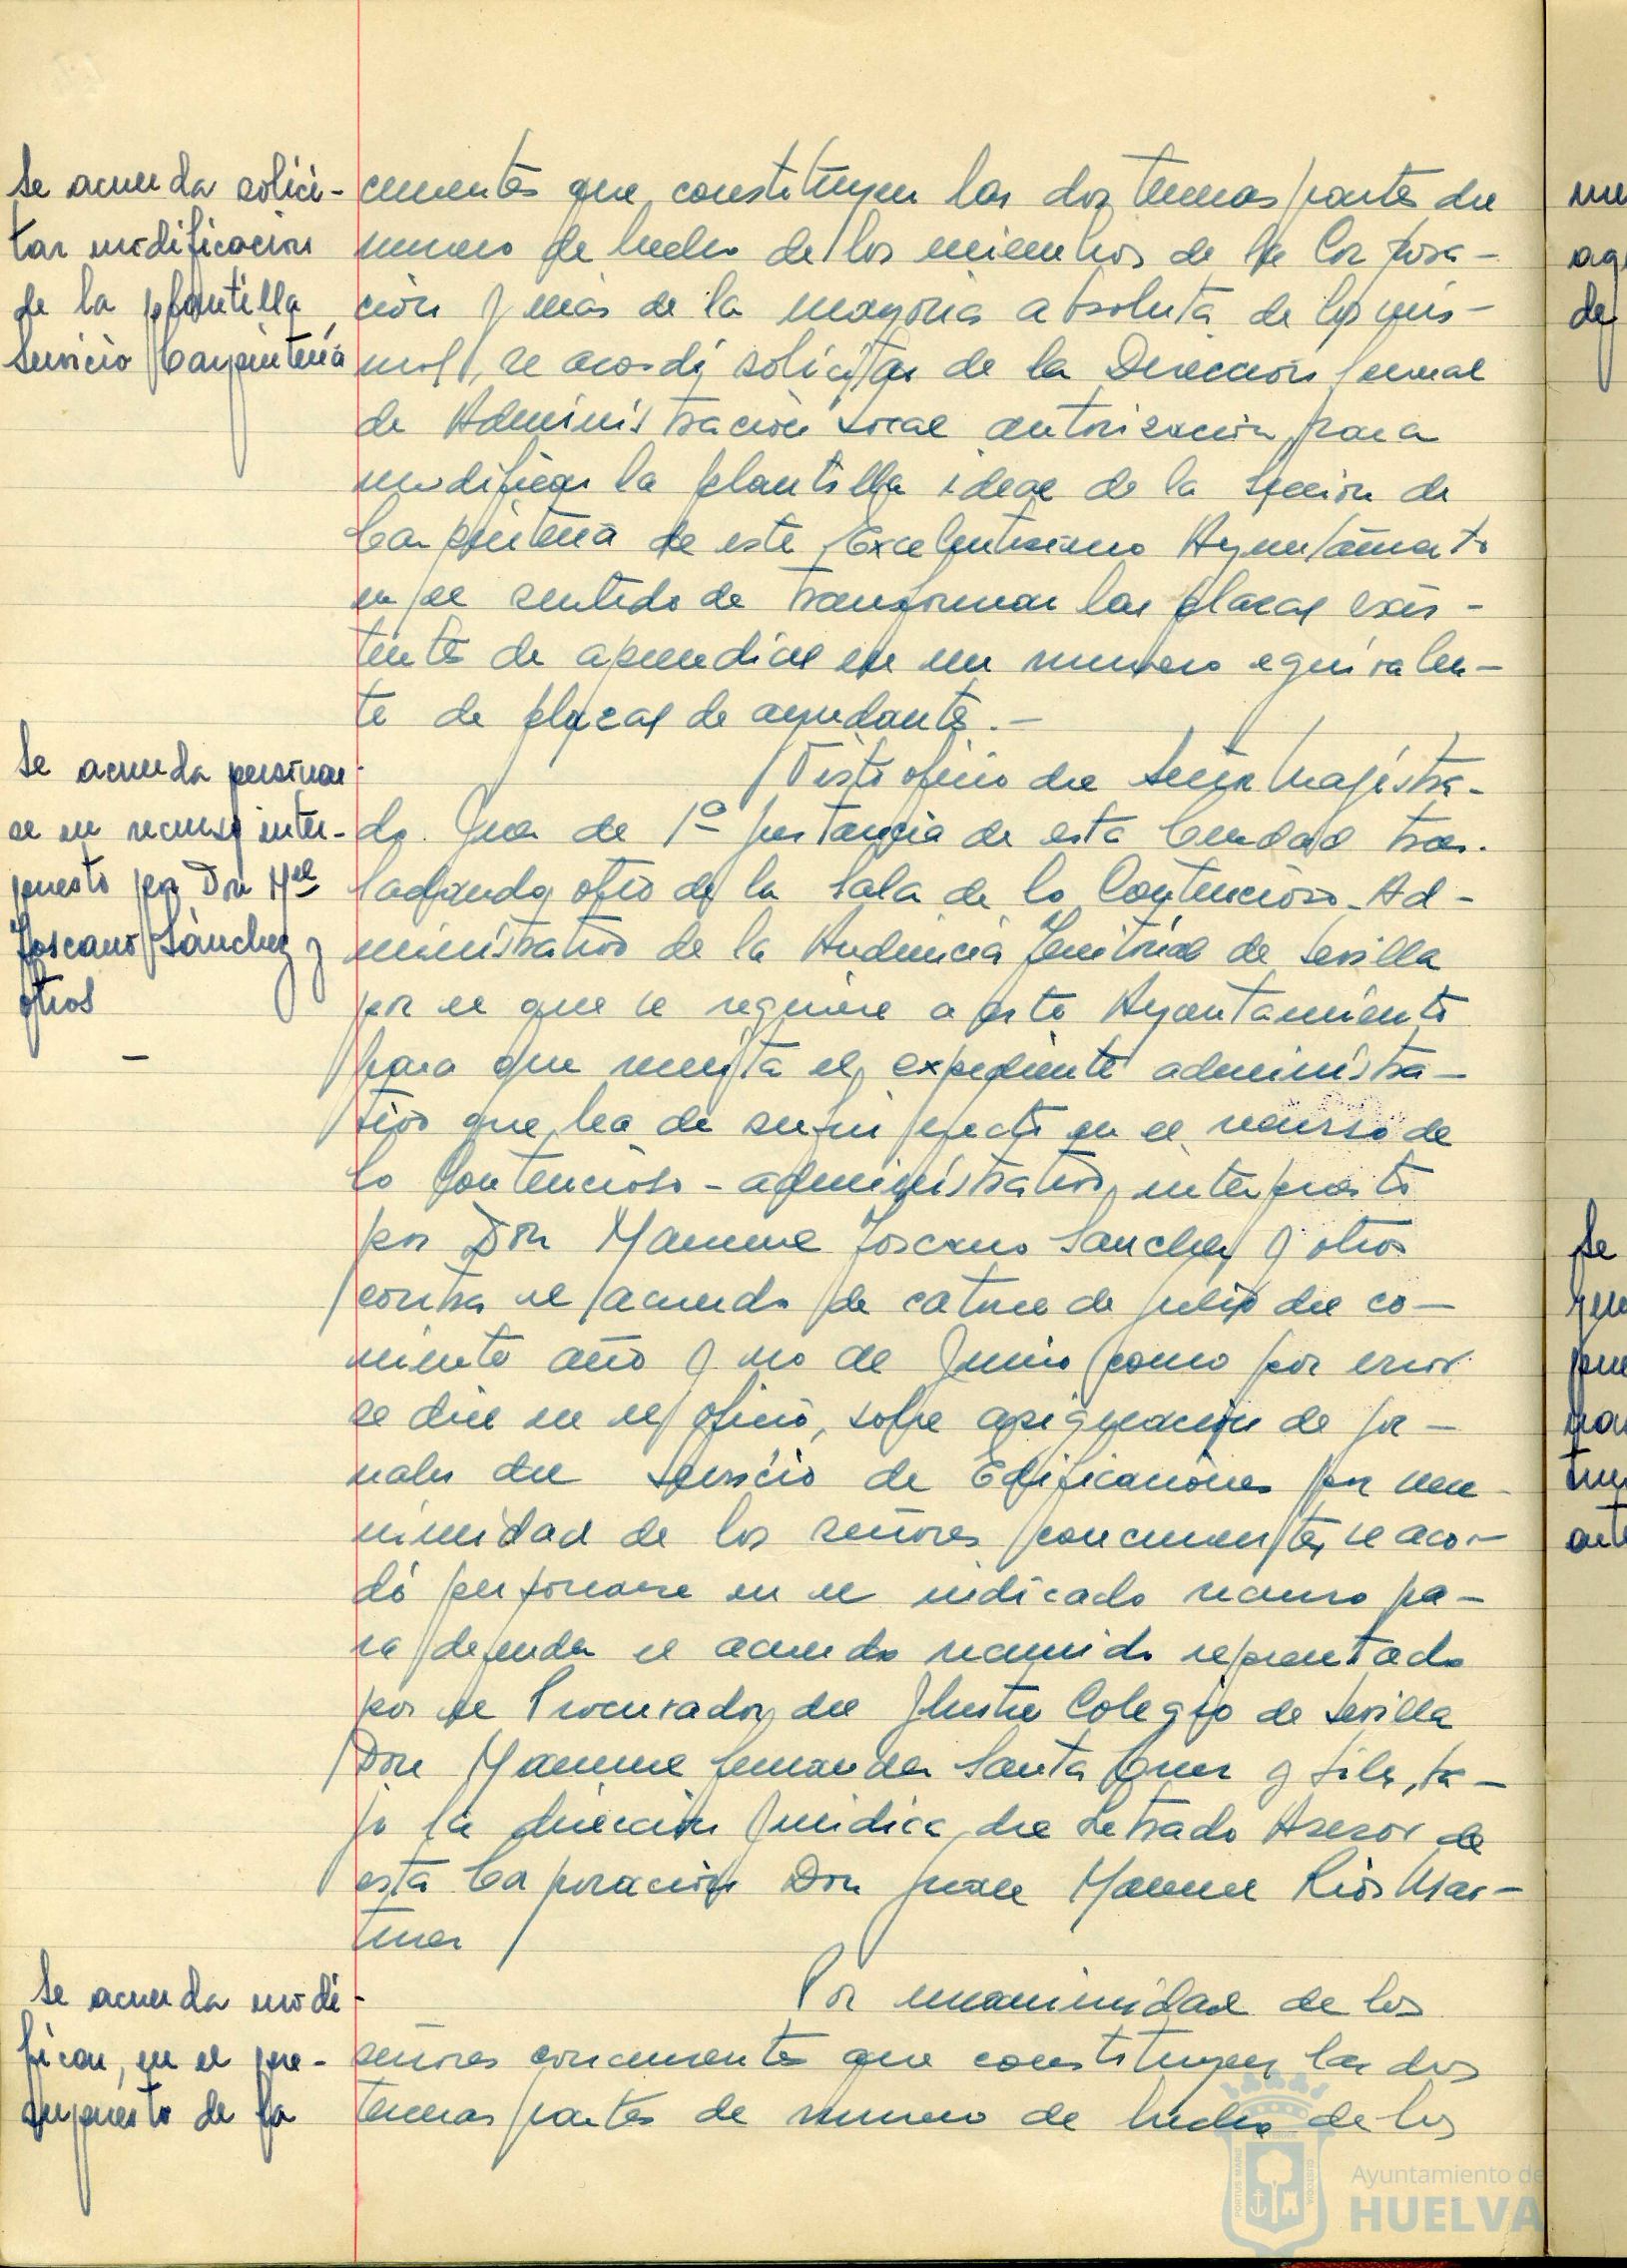 Se acuerda solici-
tar modificacion
de la plantilla
Servicio Carpintería
currentes que constituyen las dos terceras partes del
numero de hecho de los miembros de la Corpora-
ción y más de la mayoria absoluta de los mis-
mos, se acordó solicitar de la Dirección General
de Administración Local autorización para
modificar la plantilla ideal de la Sección de
Carpinteria de este Excelentisimo Ayuntamiento
en el sentido de transformar las plazas exis-
tentes de aprendices en un numero equivalen-
te de plazas de ayudantes.-
Se acuerda personar
se en recurso inter-
puesto por Don Mel
Toscano Sánchez y
otros
Visto oficio del Señor Magistra-
do Juez de 1ª Instancia de esta Ciudad tras-
ladando otro de la Sala de lo Contencioso-Ad-
ministrativo de la Audiencia Territorial de Sevilla
por el que se requiere a este Ayuntamiento
para que remita el expediente administra-
tivo que ha de surtir efecto en el recurso de
lo Contencioso-administrativo, interpuesto
por Don Manuel Toscano Sanchez y otros
contra el acuerdo de catorce de julio del co-
rriente año y no de Junio como por error
se dice en el oficio, sobre asignación de jor-
nales del servicio de Edificaciones por una-
nimidad de los señores concurrentes, se acor-
dó personarse en el indicado recurso pa-
ra defender el acuerdo recurrido representado
por el Procurador del Ilustre Colegio de Sevilla
Don Manuel Fernandez Santa Cruz y Siles, ba-
jo la dirección Juridica del Letrado Asesor de
esta Corporación Don Juan Manuel Ríos Mar-
tinez
Se acuerda modi-
ficar, en el pre-
supuesto de
Por unanimidad de los
señores concurrentes que constituyen las dos
terceras partes de numero de hecho de los
Ayuntamiento de
HUELVA